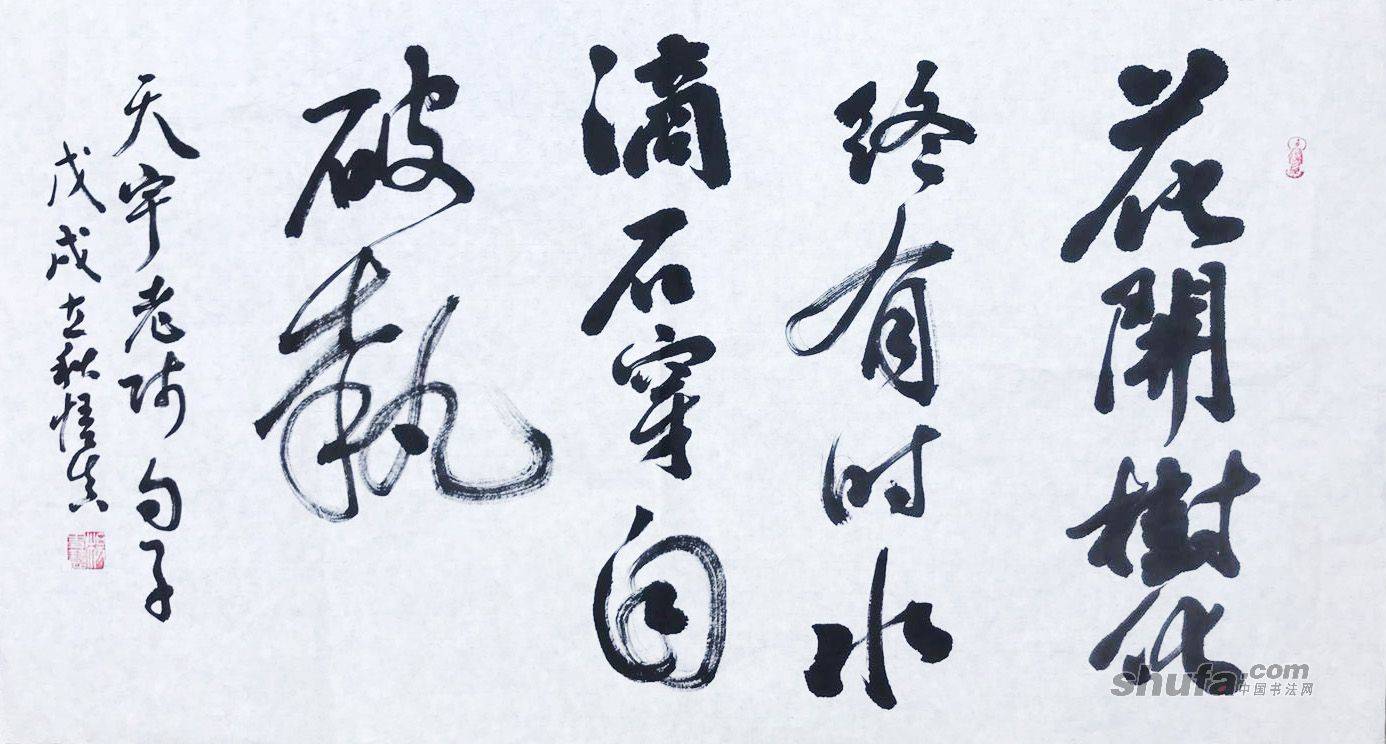 花開樹化
终有时水
滴石穿自
破執
天宇老师句子
戊戌立秋悟真
shufa.com
中国书法网